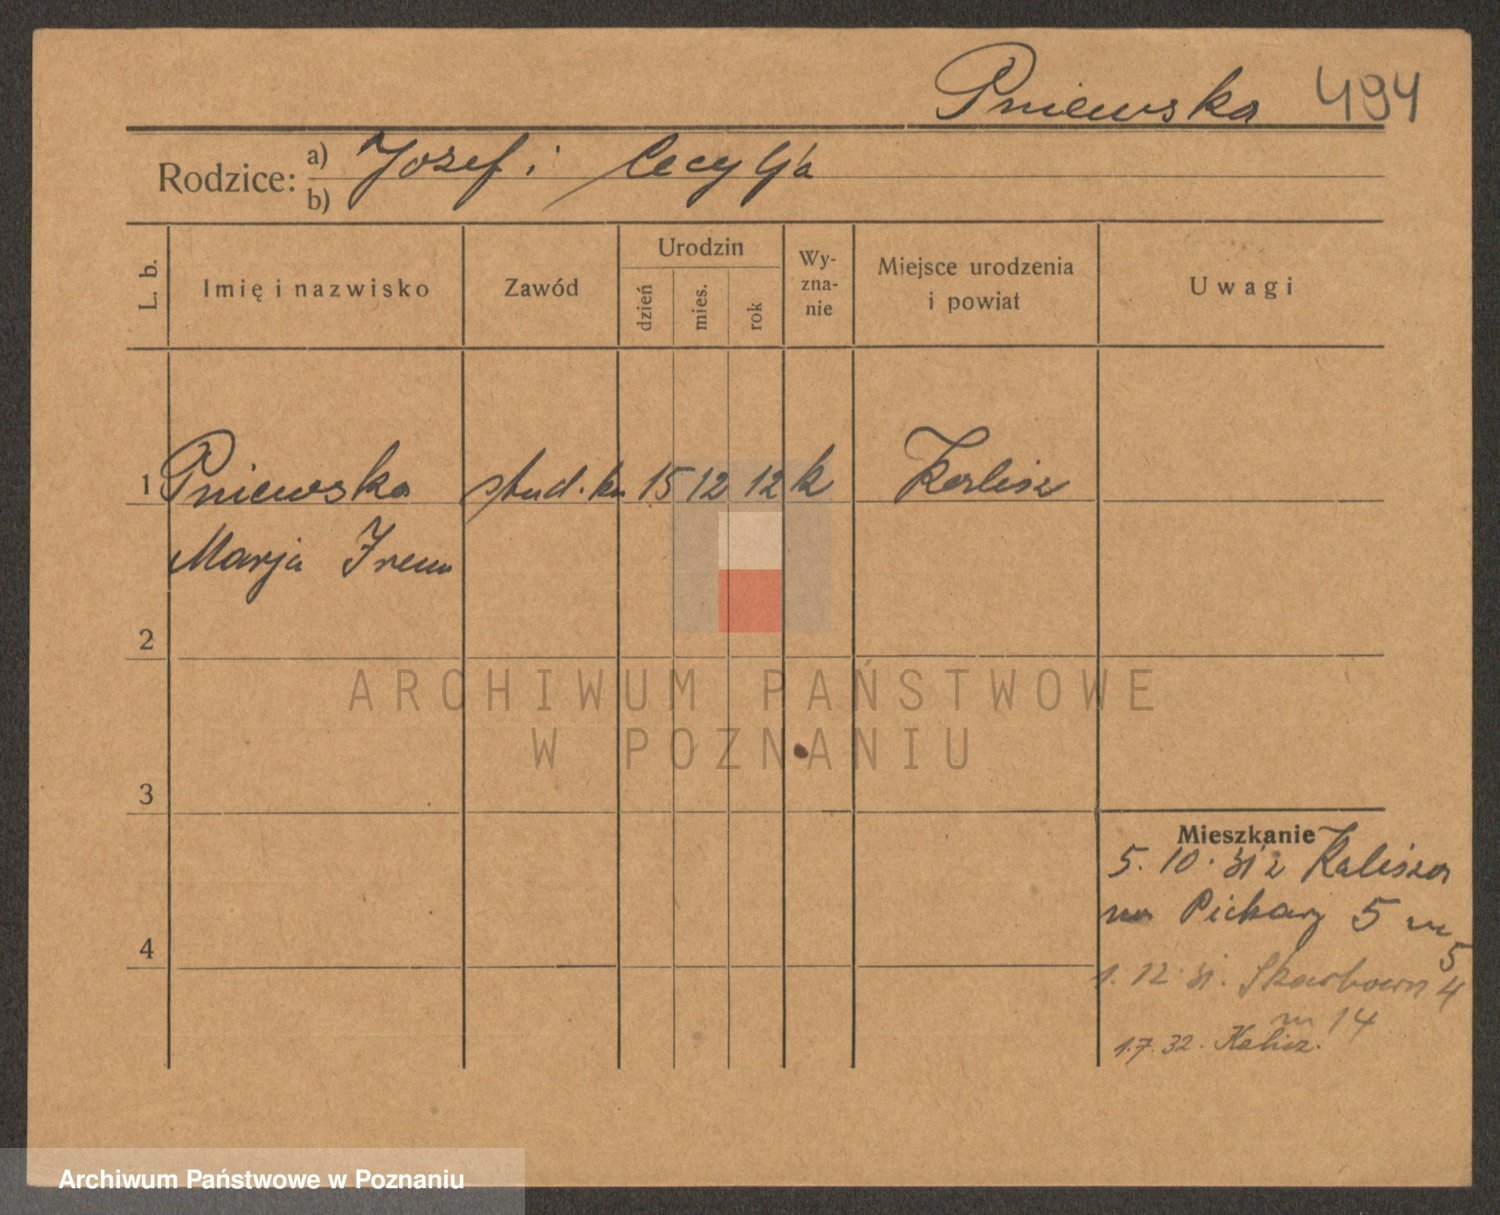 Pniewska 494
Rodzice: a) Józef i Cecylja
b)
L. b. Imię i nazwisko Zawód Urodzin dzień mies. rok Wy-zna-nie Miejsce urodzenia i powiat Uwagi
1 Pniewska stud. 15 12 12 k Kalisz
Marja Irena
2
ARCHIWUM PAŃSTWOWE
W POZNANIU
3
Mieszkanie
5. 10. 31 z Kalisza
na Piekary 5 m
5
4
1. 12. 31. Skarbowa 4
m 14
1.7.32. Kalisz.
Archiwum Państwowe w Poznaniu